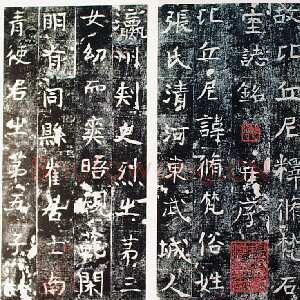 故比丘尼釋脩梵石
室誌銘 并序
比丘尼諱脩梵俗姓
張氏清河東武城人
瀛州刺史烈之第三
女幼而爽晤規範閑
明有同縣崔居士南
青使君之第五子